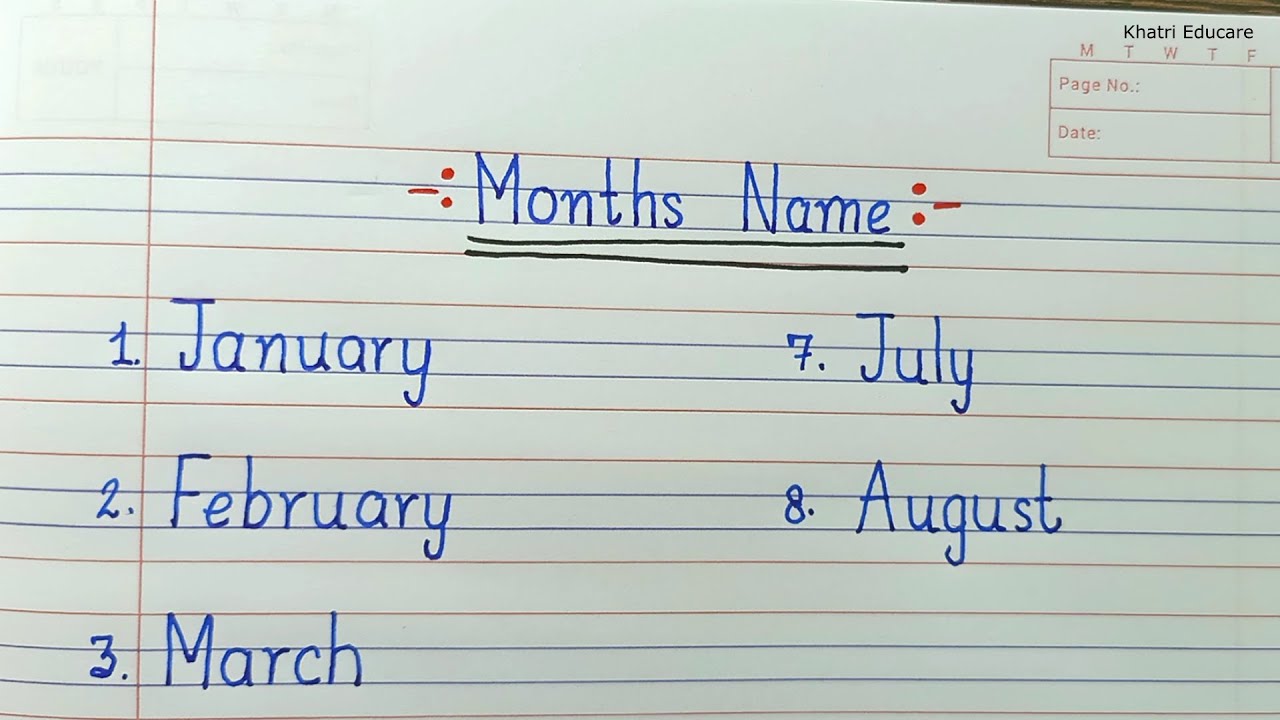 Khatri Educare
M T W T F
Page No.:
Date:
-: Months Name :-
1. January
7. July
2. February
8. August
3. March